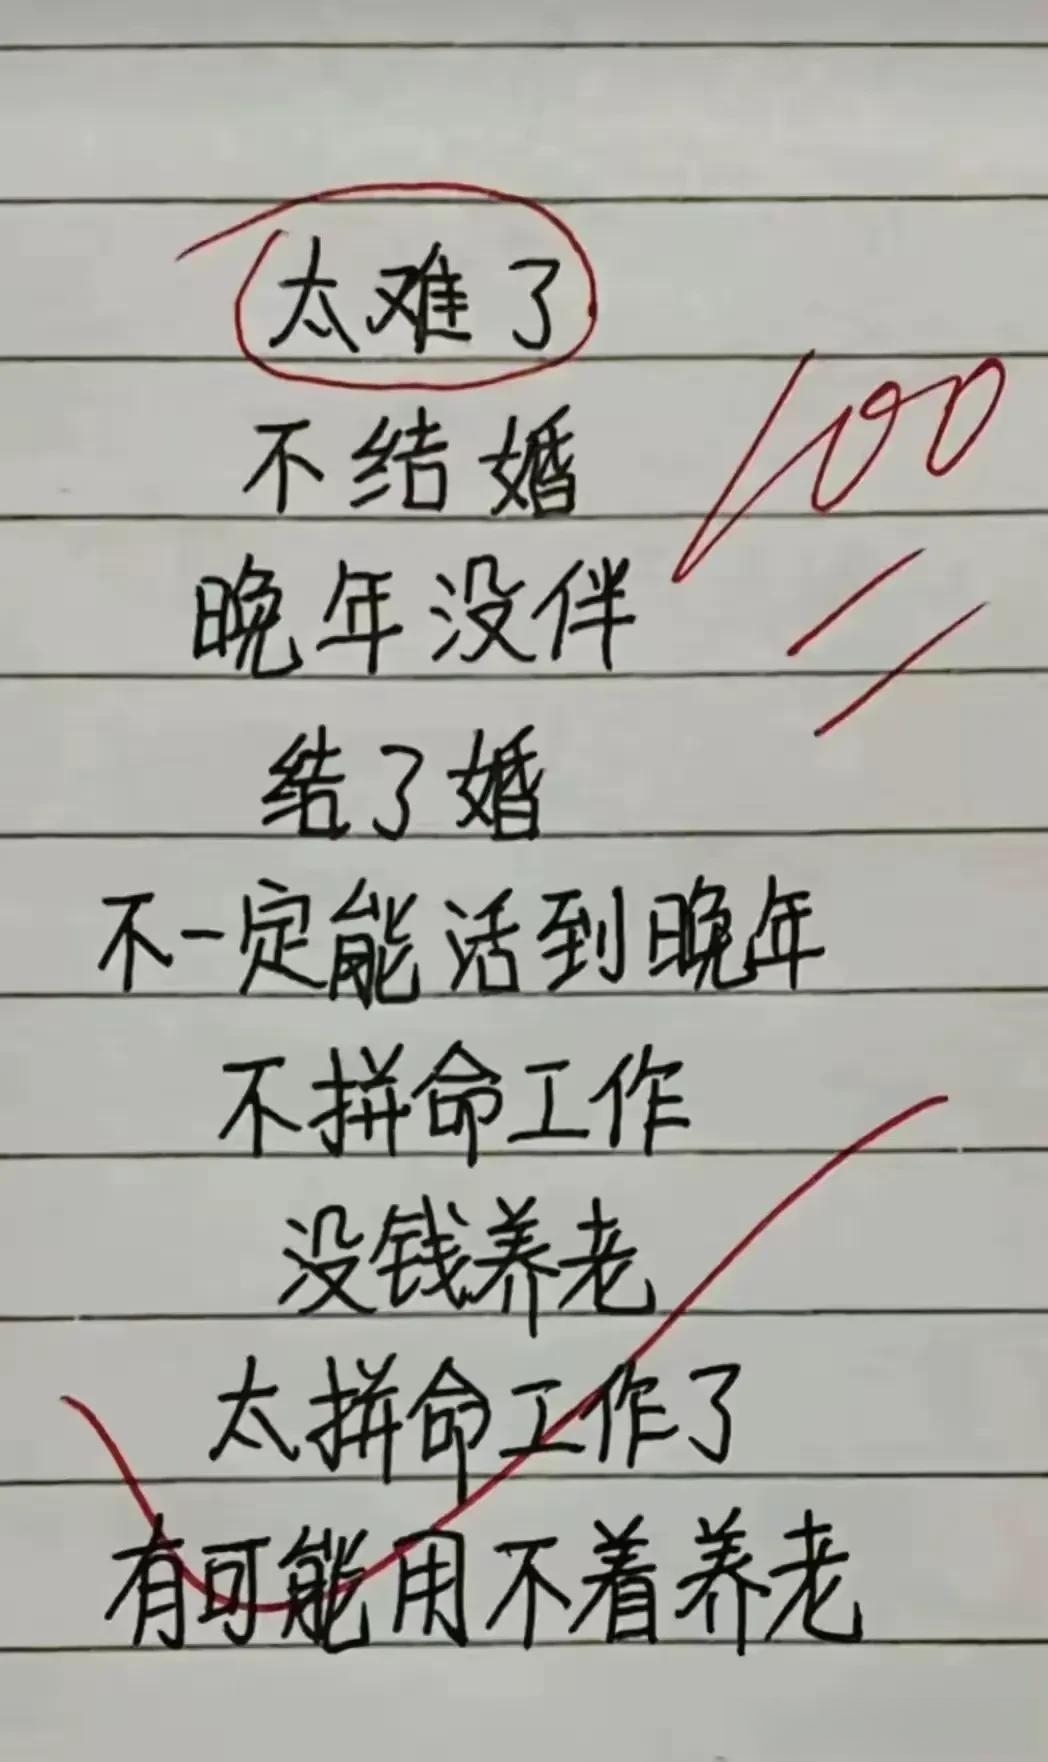 太难了
不结婚
100
晚年没伴
结了婚
不一定能活到晚年
不拼命工作
没钱养老
太拼命工作了
有可能用不着养老